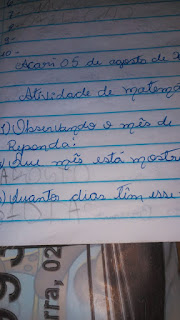 10-
Acari 05 de agosto de 2
Atividade de matemá
1) Observando o mês de
Reponda:
a) Que mês está mostra
b) Quantos dias têm esse
993
rra, 02